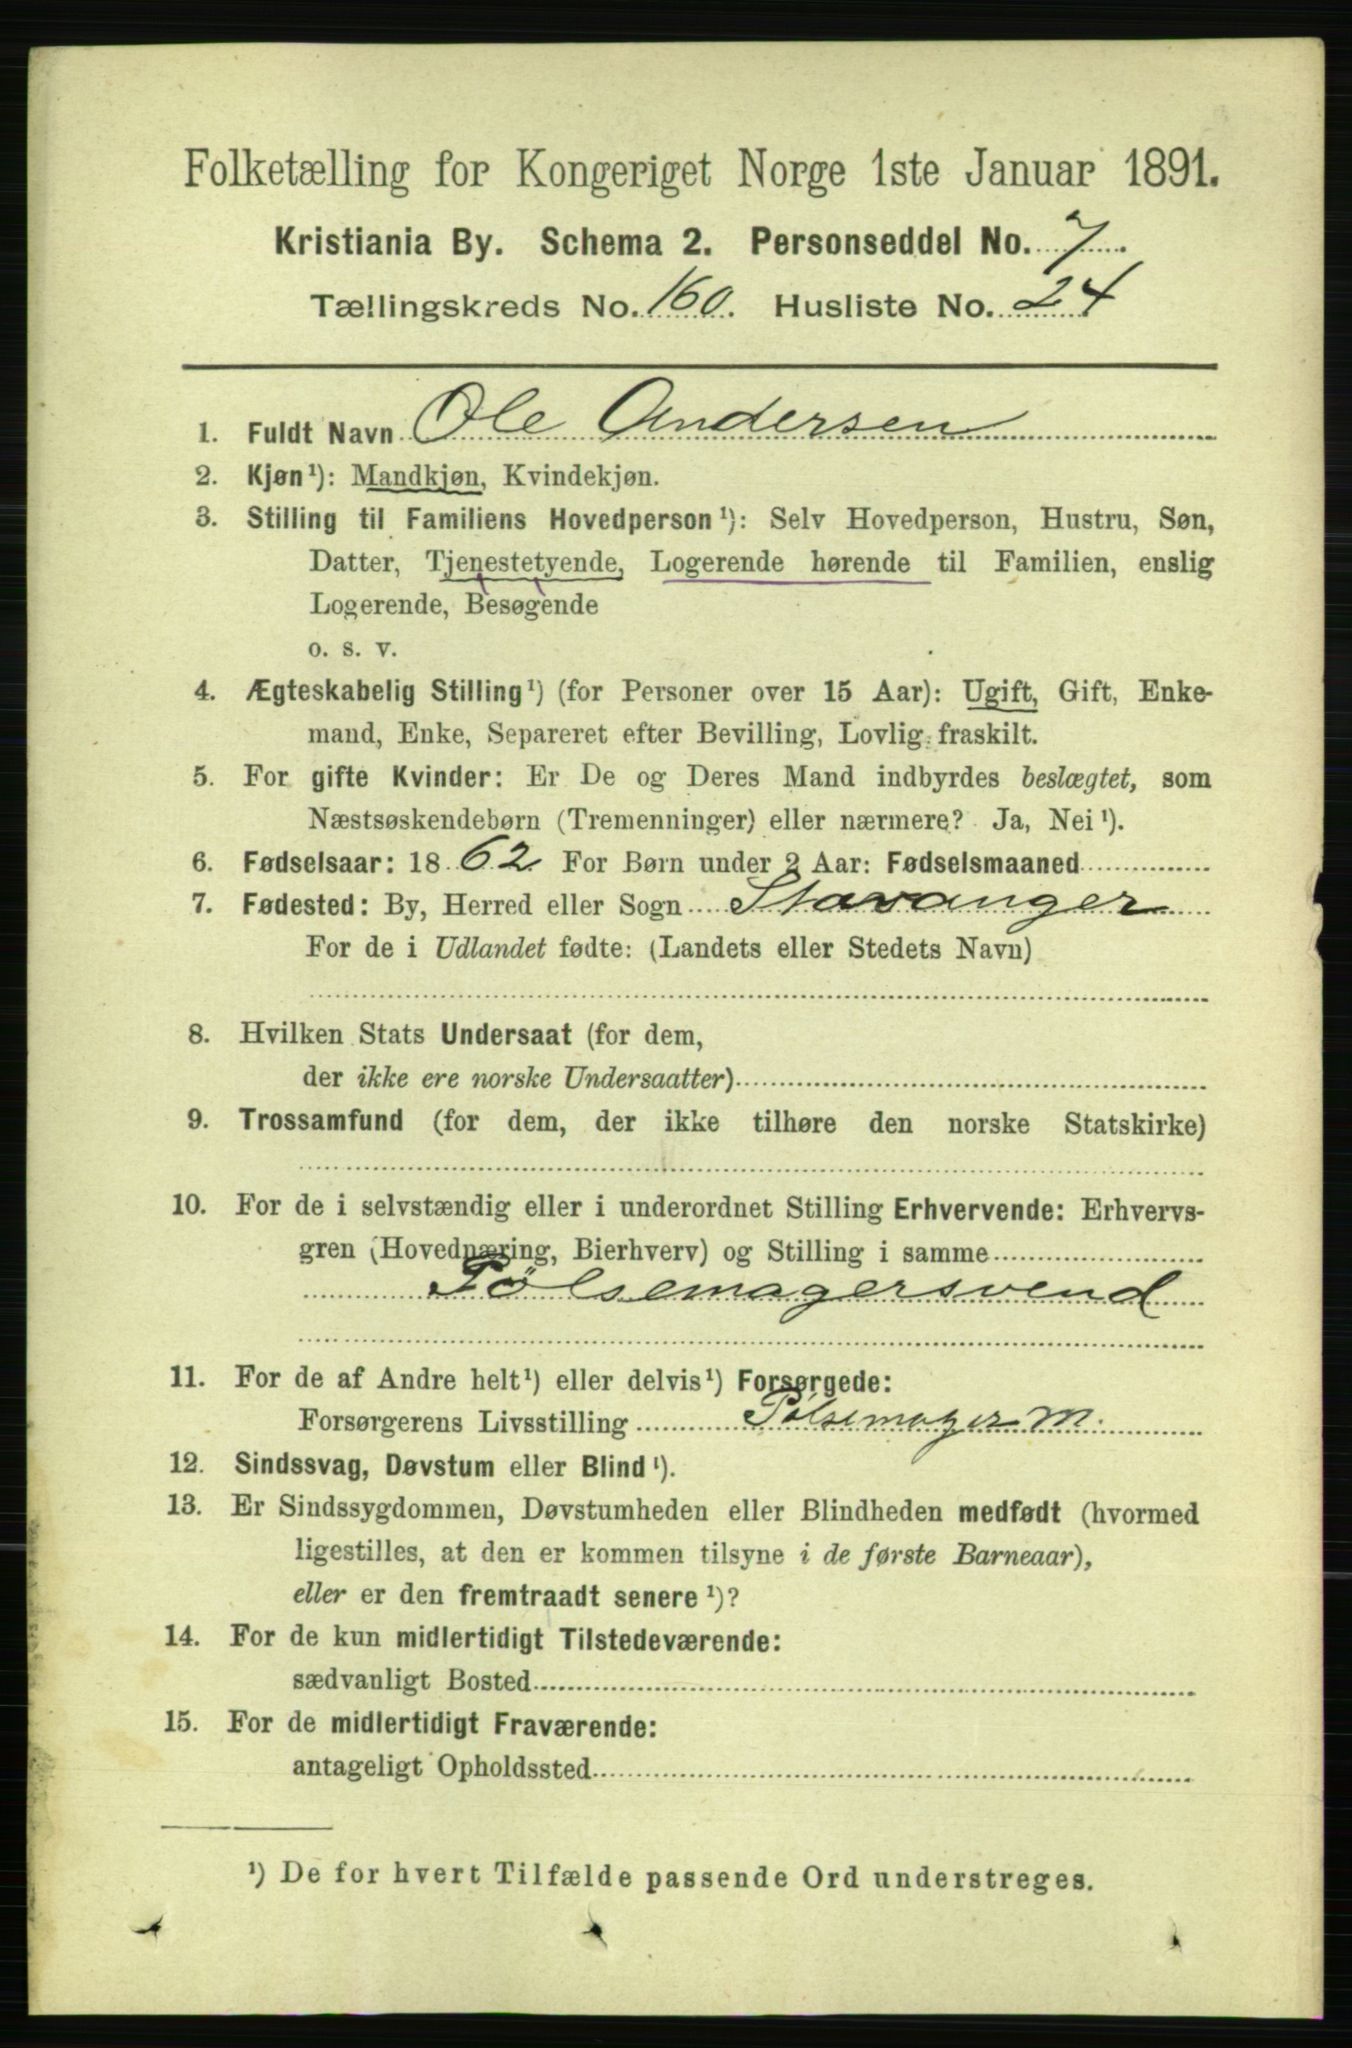 Folketælling for Kongeriget Norge 1ste Januar 1891.
Kristiania By. Schema 2. Personseddel No. 7.
Tællingskreds No. 160. Husliste No. 24
1. Fuldt Navn Ole Andersen
2. Kjøn¹): Mandkjøn, Kvindekjøn.
3. Stilling til Familiens Hovedperson¹): Selv Hovedperson, Hustru, Søn,
Datter, Tjenestetyende, Logerende hørende til Familien, enslig
Logerende, Besøgende
o. s. v.
4. Ægteskabelig Stilling¹) (for Personer over 15 Aar): Ugift, Gift, Enke-
mand, Enke, Separeret efter Bevilling, Lovlig fraskilt.
5. For gifte Kvinder: Er De og Deres Mand indbyrdes beslægtet, som
Næstsøskendebørn (Tremenninger) eller nærmere? Ja, Nei¹).
6. Fødselsaar: 1862. For Børn under 2 Aar: Fødselsmaaned
7. Fødested: By, Herred eller Sogn Stavanger
For de i Udlandet fødte: (Landets eller Stedets Navn)
8. Hvilken Stats Undersaat (for dem,
der ikke ere norske Undersaatter)
9. Trossamfund (for dem, der ikke tilhøre den norske Statskirke)
10. For de i selvstændig eller i underordnet Stilling Erhvervende: Erhvervs-
gren (Hovednæring, Bierhverv) og Stilling i samme
Pølsemagersvend
11. For de af Andre helt¹) eller delvis¹) Forsørgede:
Forsørgerens Livsstilling Pølsemager m.
12. Sindssvag, Døvstum eller Blind¹).
13. Er Sindssygdommen, Døvstumheden eller Blindheden medfødt (hvormed
ligestilles, at den er kommen tilsyne i de første Barneaar),
eller er den fremtraadt senere¹)?
14. For de kun midlertidigt Tilstedeværende:
sædvanligt Bosted
15. For de midlertidigt Fraværende:
antageligt Opholdssted
¹) De for hvert Tilfælde passende Ord understreges.